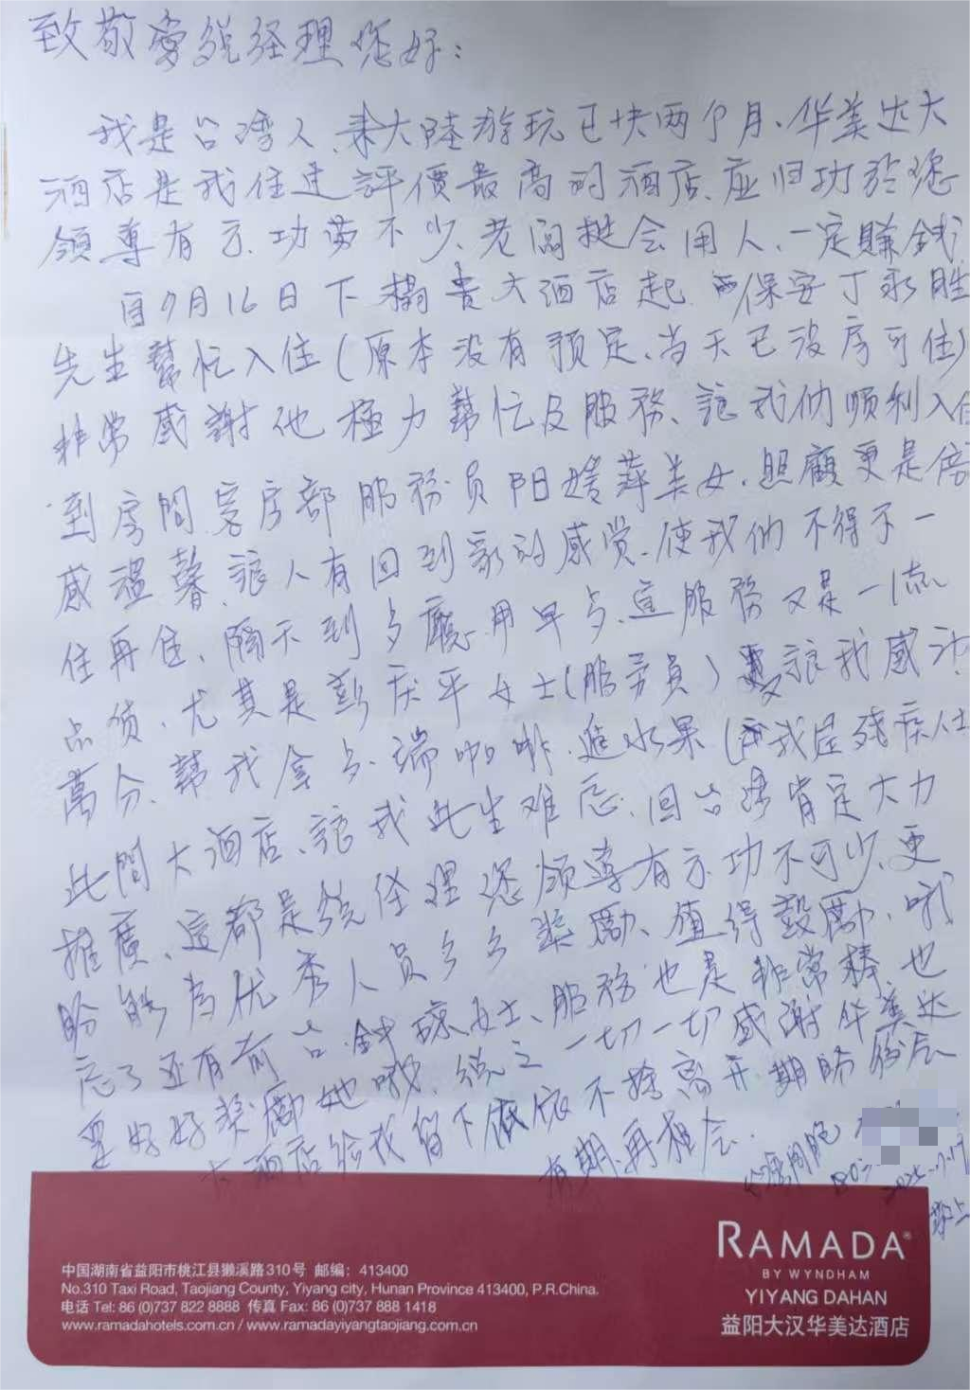 致敬爱总经理您好：
我是台湾人、来大陸游玩已快两个月、华美达大
酒店是我住过評價最高的酒店、应归功於您
领導有方、功劳不少、老闆挺会用人、一定賺錢
自7月16日下榻贵大酒店起 保安丁永胜
先生幫忙入住(原本没有预定、当天已没房可住)
非常感謝他極力幫忙及服務、讓我们顺利入住
到房間客房部服務员阳媛萍美女、照顧更是倍
感溫馨、讓人有回到家的感觉、使我们不得不一
住再住、隔天到歺廳用早点、這服務又是一流
品质、尤其是彭庆平女士(服务員)更讓我感动
萬分、幫我拿点、端咖啡、進水果(因我是残疾人仕
此間大酒店、讓我此生难忘、回台灣肯定大力
推廣、這都是总经理您领導有方、功不可少、更
盼能为优秀人员多多奖勵、值得鼓勵、哦
忘了还有前台 女士、服務也是非常棒、也
要好好奖勵她哦、总之一切一切感謝华美达
大酒店给我留下依依不捨离开、期盼
有期、再相会、
台湾同胞
803
敬上
RAMADA
BY WYNDHAM
YIYANG DAHAN
益阳大汉华美达酒店
中国湖南省益阳市桃江县獭溪路310号 邮编：413400
No.310 Taxi Road, Taojiang County, Yiyang city, Hunan Province 413400, P.R.China.
电话 Tel: 86 (0)737 822 8888 传真 Fax: 86 (0)737 888 1418
www.ramadahotels.com.cn / www.ramadayiyangtaojiang.com.cn